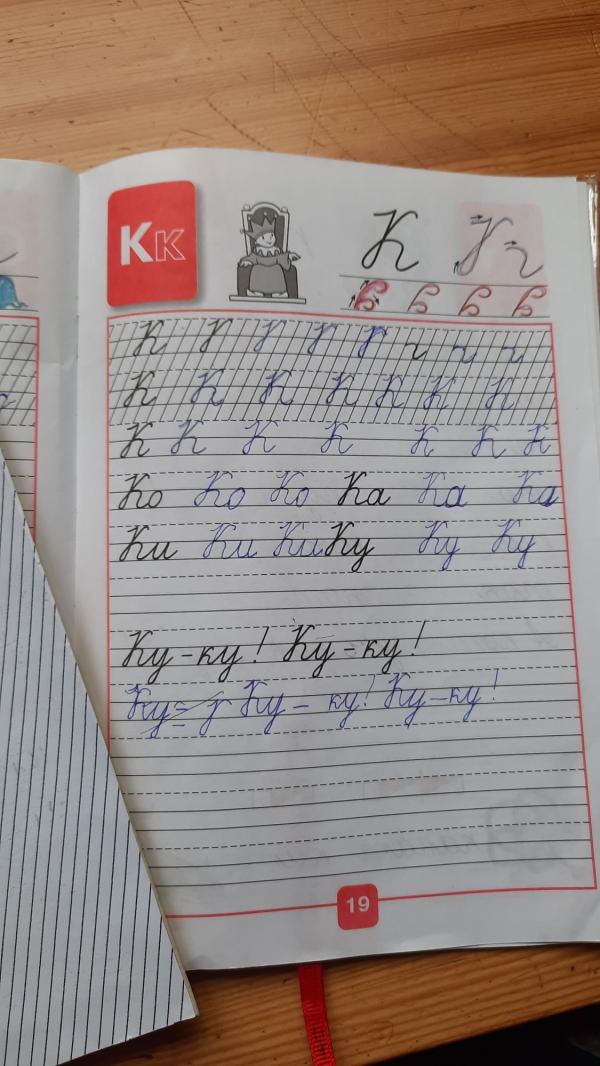 Кк
К
К К К К К К К
К К К К К К К
Ко Ко Ко Ка Ка Ка
Ки Ки Ки Ку Ку Ку
Ку-ку! Ку-ку!
Ку= Ку - ку! Ку-ку!
19